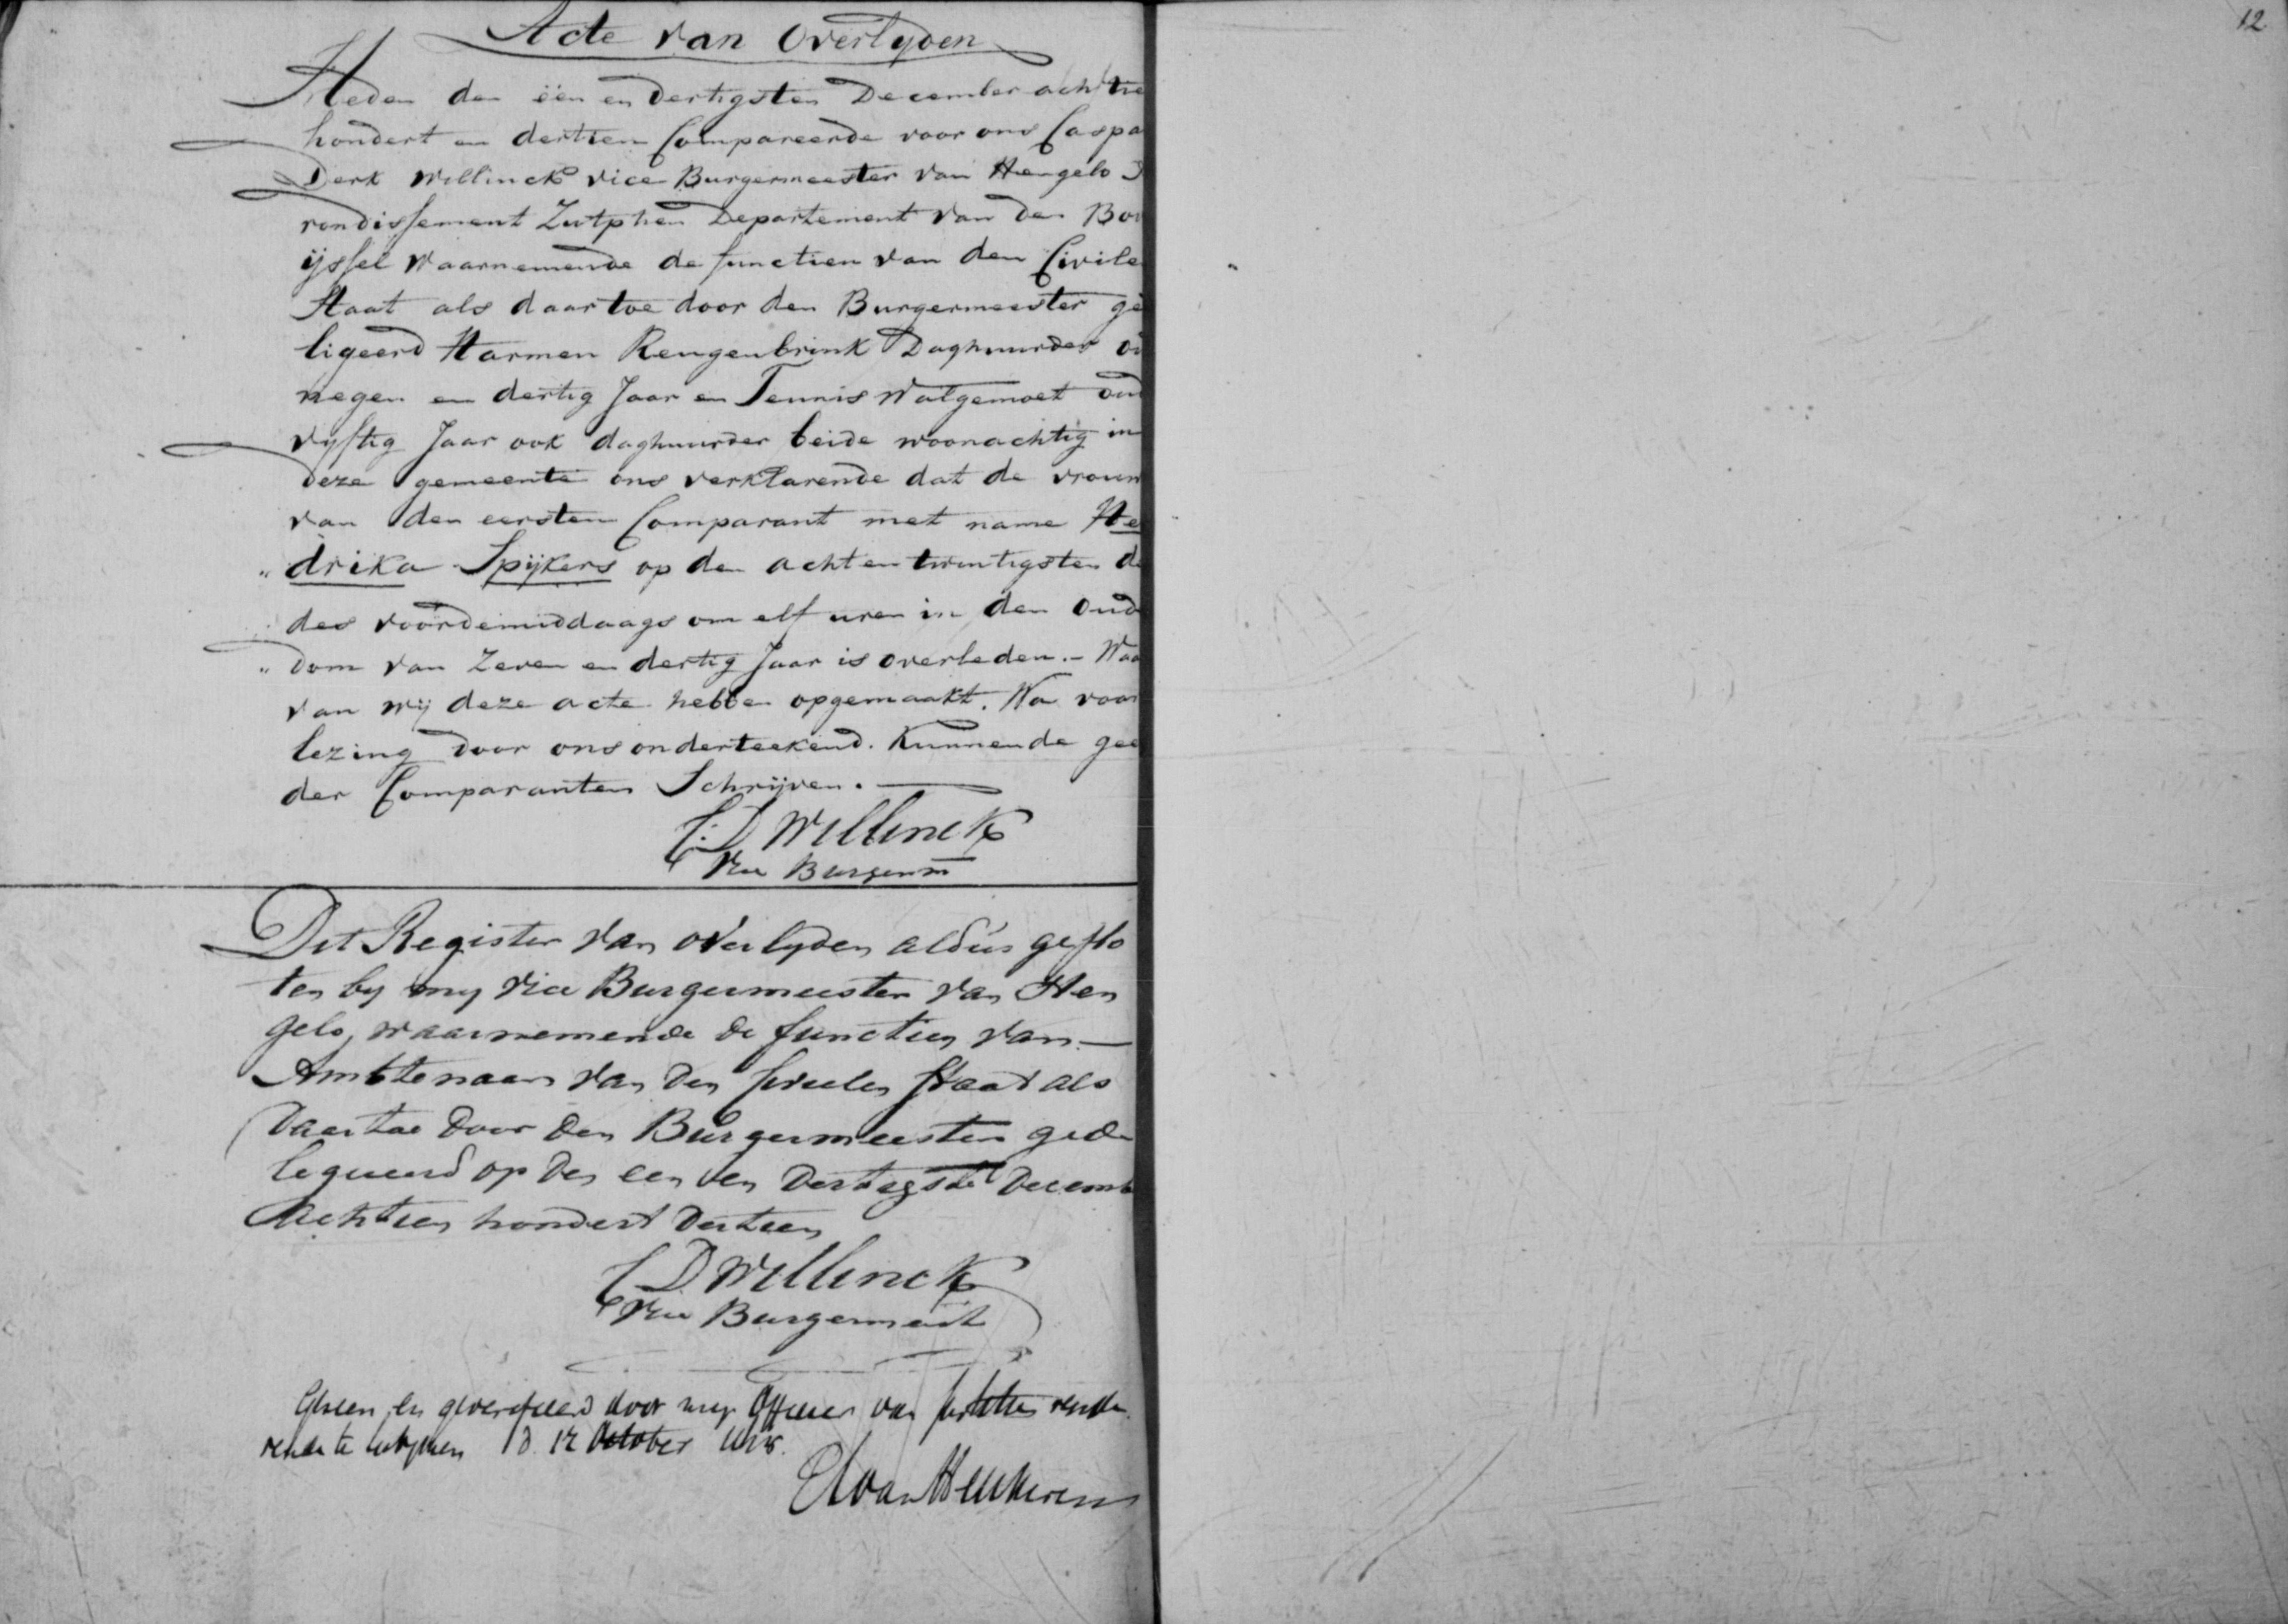 12
Acte van Overlyden
Heden den één en dertigsten December achttie
hondert en dertien Compareerde voor ons Caspa
Derk Willinck vice Burgermeester van Hengelo
rondissement Zutphen Departement van den Bov
ijssel waarnemende de functien van den Civile
Staat als daartoe door den Burgermeester ge
ligeerd Harmen Reugenbrink Daghuurder ou
negen en dertig Jaar en Teunis Walgemoet oud
vyftig Jaar ook daghuurder beide woonachtig in
deze gemeente ons verklarende dat de vrouw
van den eersten Comparant met name He
drika Spijkers op den achtentwintigsten de
des voordemiddaags om elf uren in den oud
dom van Zeven en dertig Jaar is overleden. - Waa
van wij deze acte hebben opgemaakt. Na voor
lezing door ons onderteekend. Kunnende gee
der Comparanten Schrijven.
C: D Willinck
Vice Burgerm
Dit Register van overlyden aldus geslo
ten by my vice Burgermeester van Hen
gelo, waarnemende de functien van
Ambtenaar van den Civielen Staat als
daartoe door den Burgermeester gede
legueerd op den een en dertigste Decemb
Achttien hondert dertien
C D Willinck
Vice Burgermeest
Gezien en geverifieerd door my Officier van Justitie
te Zutphen d. 12 October